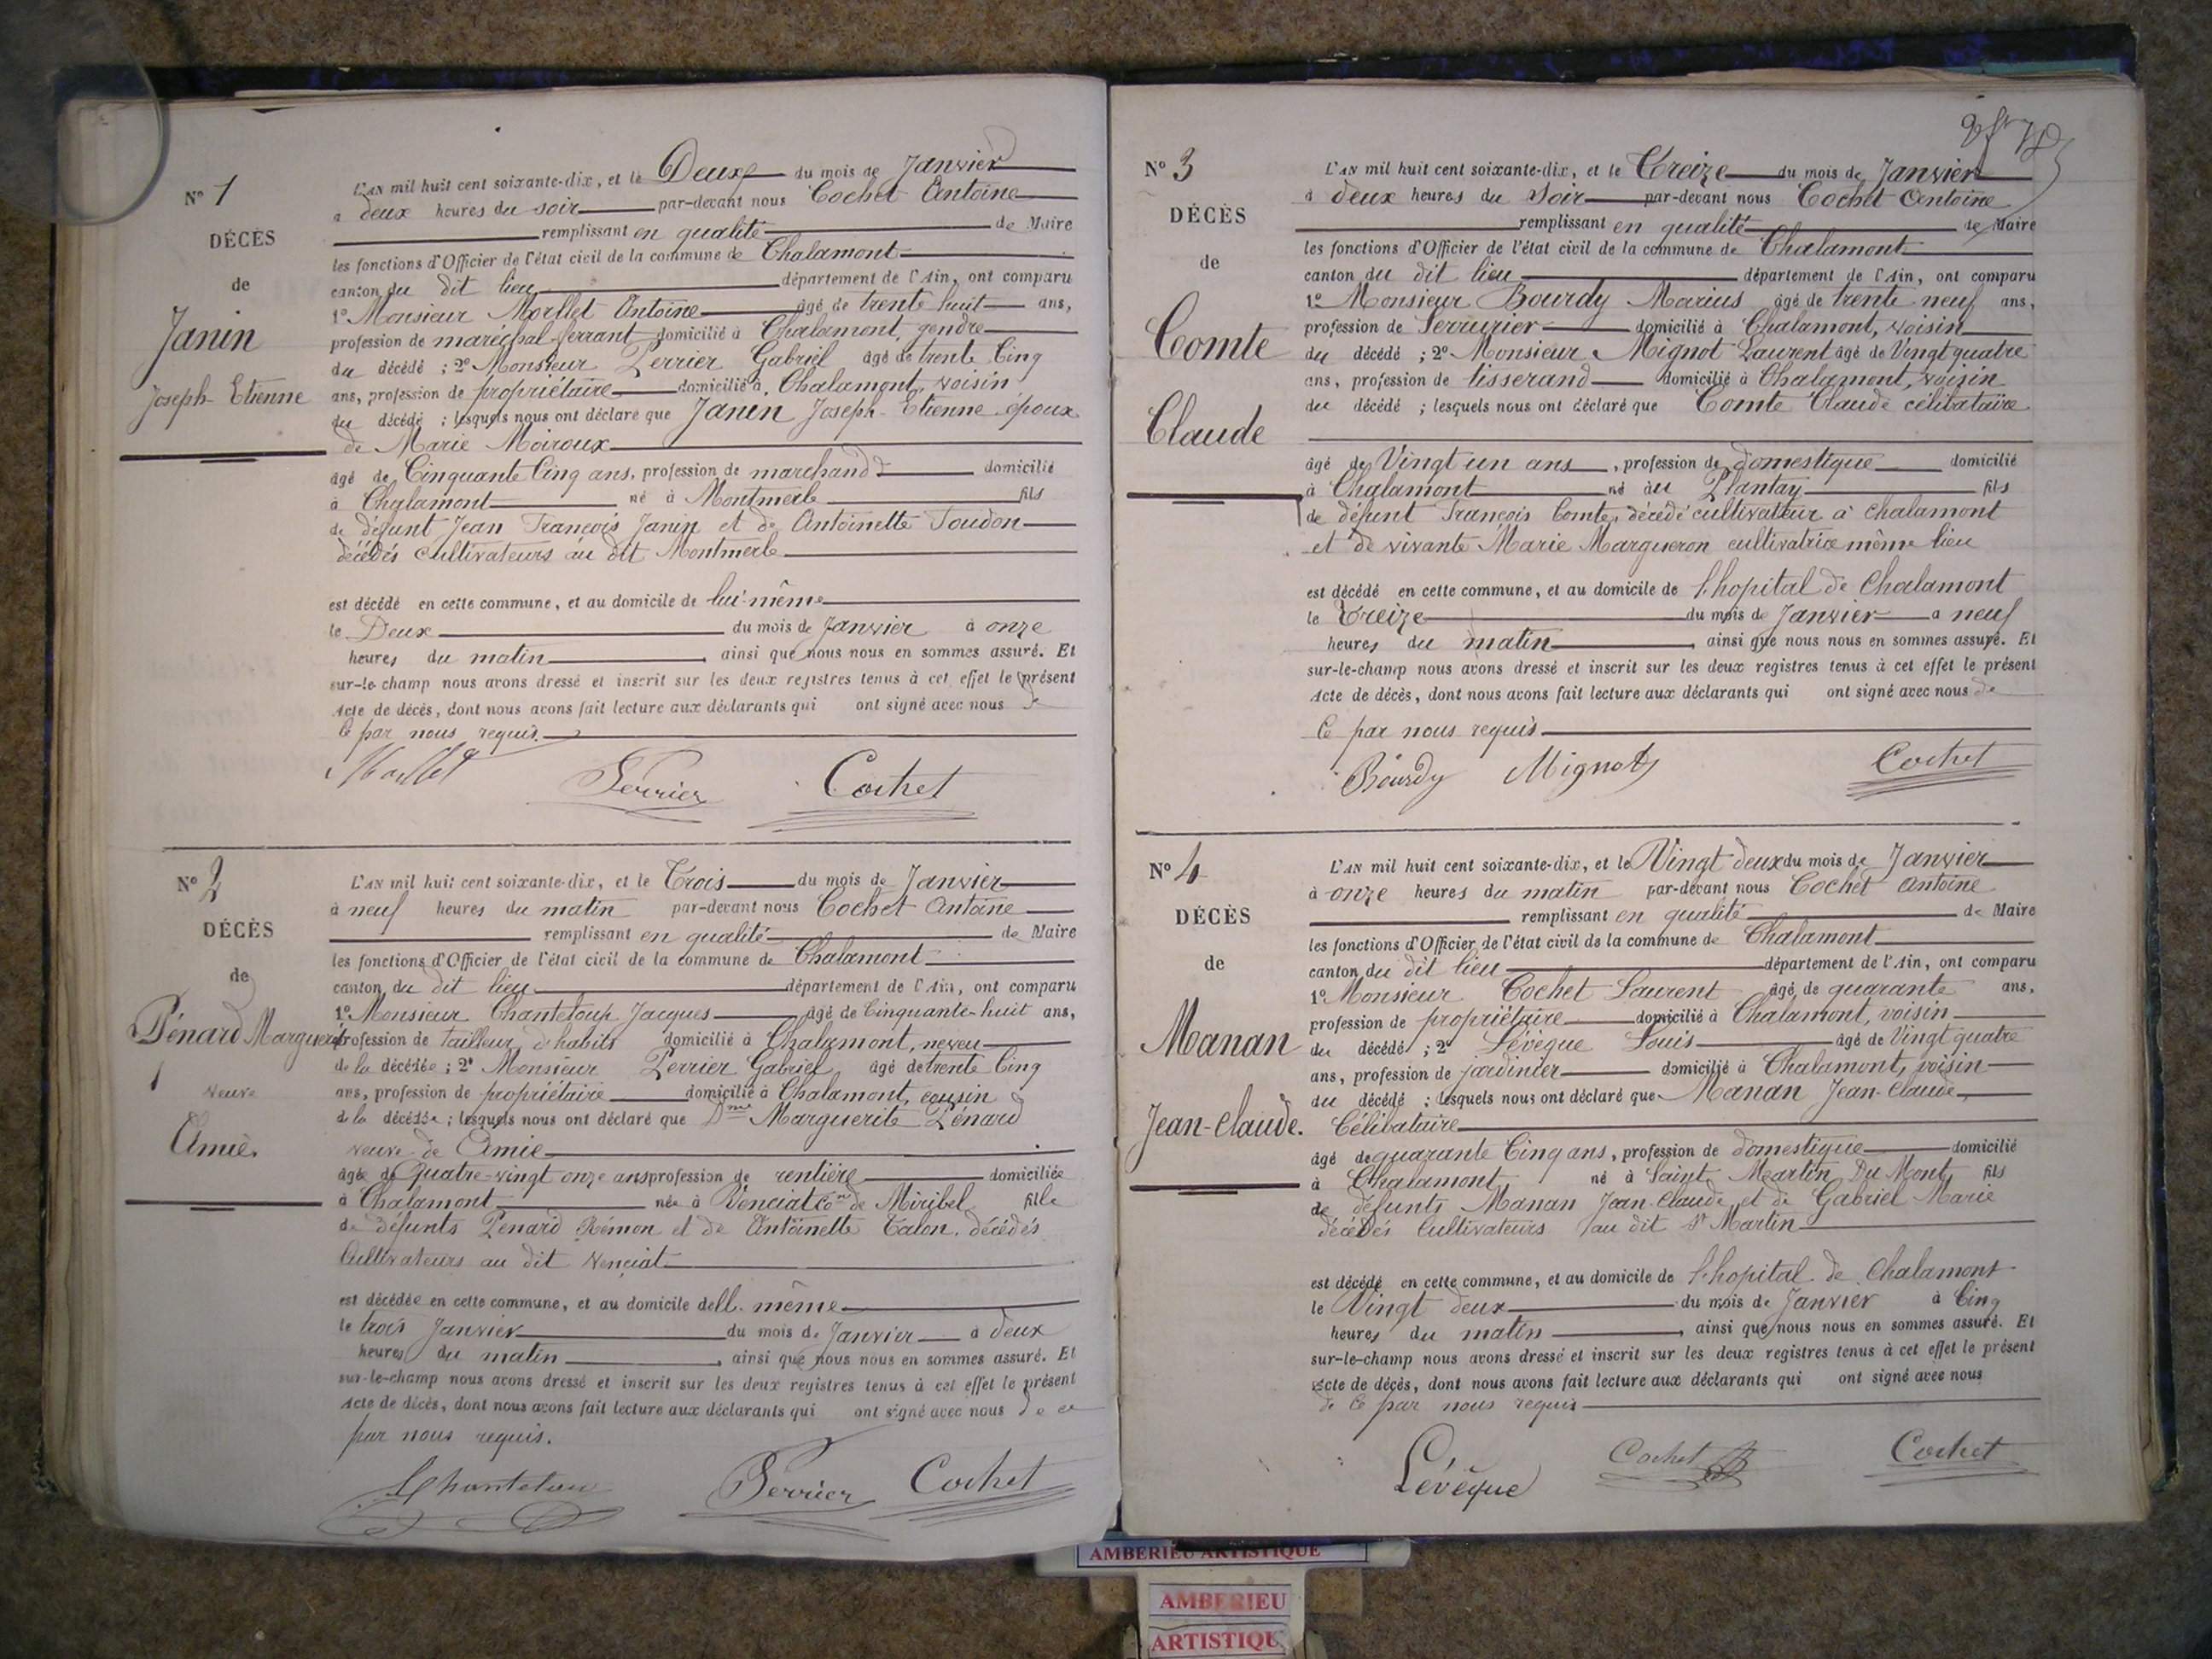 N° 1
DÉCÈS
de
Janin
Joseph-Etienne
L'AN mil huit cent soixante-dix, et le Deux du mois de Janvier
à deux heures du soir par-devant nous Cochet Antoine
remplissant en qualité de Maire
les fonctions d'Officier de l'état civil de la commune de Chalamont
canton du dit lieu département de l'Ain, ont comparu
1° Monsieur Morllet Antoine âgé de trente huit ans,
profession de maréchal-ferrant domicilié à Chalamont, gendre
du décédé ; 2° Monsieur Perrier Gabriel âgé de trente Cinq
ans, profession de propriétaire domicilié à Chalamont, voisin
du décédé ; lesquels nous ont déclaré que Janin Joseph-Etienne époux
de Marie Moiroux
âgé de Cinquante Cinq ans, profession de marchand domicilié
à Chalamont né à Montmerle fils
de défunt Jean François Janin et de Antoinette Toudon
décédés cultivateurs au dit Montmerle
est décédé en cette commune, et au domicile de lui-même
le Deux du mois de Janvier à onze
heures du matin, ainsi que nous nous en sommes assuré. Et
sur-le-champ nous avons dressé et inscrit sur les deux registres tenus à cet effet le présent
Acte de décès, dont nous avons fait lecture aux déclarants qui ont signé avec nous de
ce par nous requis.
Perrier Cochet
N° 2
DÉCÈS
de
Pénard Marguerite
Veuve
Amie.
L'AN mil huit cent soixante-dix, et le Trois du mois de Janvier
à neuf heures du matin par-devant nous Cochet Antoine
remplissant en qualité de Maire
les fonctions d'Officier de l'état civil de la commune de Chalamont
canton du dit lieu département de l'Ain, ont comparu
1° Monsieur Chanteloup Jacques âgé de Cinquante-huit ans,
profession de tailleur d'habits domicilié à Chalamont, neveu
de la décédée ; 2° Monsieur Perrier Gabriel âgé de trente Cinq
ans, profession de propriétaire domicilié à Chalamont, cousin
de la décédée ; lesquels nous ont déclaré que Dme Marguerite Pénard
veuve de Amie
âgée de quatre-vingt onze ans profession de rentière domiciliée
à Chalamont née à Venciat Con de Miribel fille
de défunts Penard Rémon et de Antoinette Talon, décédés
Cultivateurs au dit Venciat
est décédée en cette commune, et au domicile d'elle même
le trois Janvier du mois de Janvier à deux
heures du matin, ainsi que nous nous en sommes assuré. Et
sur-le-champ nous avons dressé et inscrit sur les deux registres tenus à cet effet le présent
Acte de décès, dont nous avons fait lecture aux déclarants qui ont signé avec nous de ce
par nous requis.
Perrier Cochet
N° 3
DÉCÈS
de
Comte
Claude
L'AN mil huit cent soixante-dix, et le Treize du mois de Janvier
à deux heures du soir par-devant nous Cochet Antoine
remplissant en qualité de Maire
les fonctions d'Officier de l'état civil de la commune de Chalamont
canton du dit lieu département de l'Ain, ont comparu
1° Monsieur Bourdy Marius âgé de trente neuf ans,
profession de Serrurier domicilié à Chalamont, voisin
du décédé ; 2° Monsieur Mignot Laurent âgé de Vingt quatre
ans, profession de tisserand domicilié à Chalamont, voisin
du décédé ; lesquels nous ont déclaré que Comte Claude célibataire
âgé de Vingt un ans, profession de domestique domicilié
à Chalamont né au Plantay fils
de défunt François Comte, décédé cultivateur à Chalamont
et de vivante Marie Margueron cultivatrice même lieu
est décédé en cette commune, et au domicile de l'hopital de Chalamont
le Treize du mois de Janvier à neuf
heures du matin, ainsi que nous nous en sommes assuré. Et
sur-le-champ nous avons dressé et inscrit sur les deux registres tenus à cet effet le présent
Acte de décès, dont nous avons fait lecture aux déclarants qui ont signé avec nous de
Ce par nous requis
Bourdy Mignot Cochet
N° 4
DÉCÈS
de
Manan
Jean-Claude.
L'AN mil huit cent soixante-dix, et le Vingt deux du mois de Janvier
à onze heures du matin par-devant nous Cochet Antoine
remplissant en qualité de Maire
les fonctions d'Officier de l'état civil de la commune de Chalamont
canton du dit lieu département de l'Ain, ont comparu
1° Monsieur Cochet Laurent âgé de quarante ans,
profession de propriétaire domicilié à Chalamont, voisin
du décédé ; 2° Lévêque Louis âgé de Vingt quatre
ans, profession de jardinier domicilié à Chalamont, voisin
du décédé ; lesquels nous ont déclaré que Manan Jean-Claude,
Célibataire
âgé de quarante Cinq ans, profession de domestique domicilié
à Chalamont né à Saint Martin Du Mont fils
de défunts Manan Jean-Claude et de Gabriel Marie
décédés Cultivateurs au dit St Martin
est décédé en cette commune, et au domicile de l'hopital de Chalamont
le Vingt deux du mois de Janvier à Cinq
heures du matin, ainsi que nous nous en sommes assuré. Et
sur-le-champ nous avons dressé et inscrit sur les deux registres tenus à cet effet le présent
Acte de décès, dont nous avons fait lecture aux déclarants qui ont signé avec nous
de Ce par nous requis
Lévêque Cochet Cochet
AMBERIEU ARTISTIQUE
AMBERIEU
ARTISTIQU